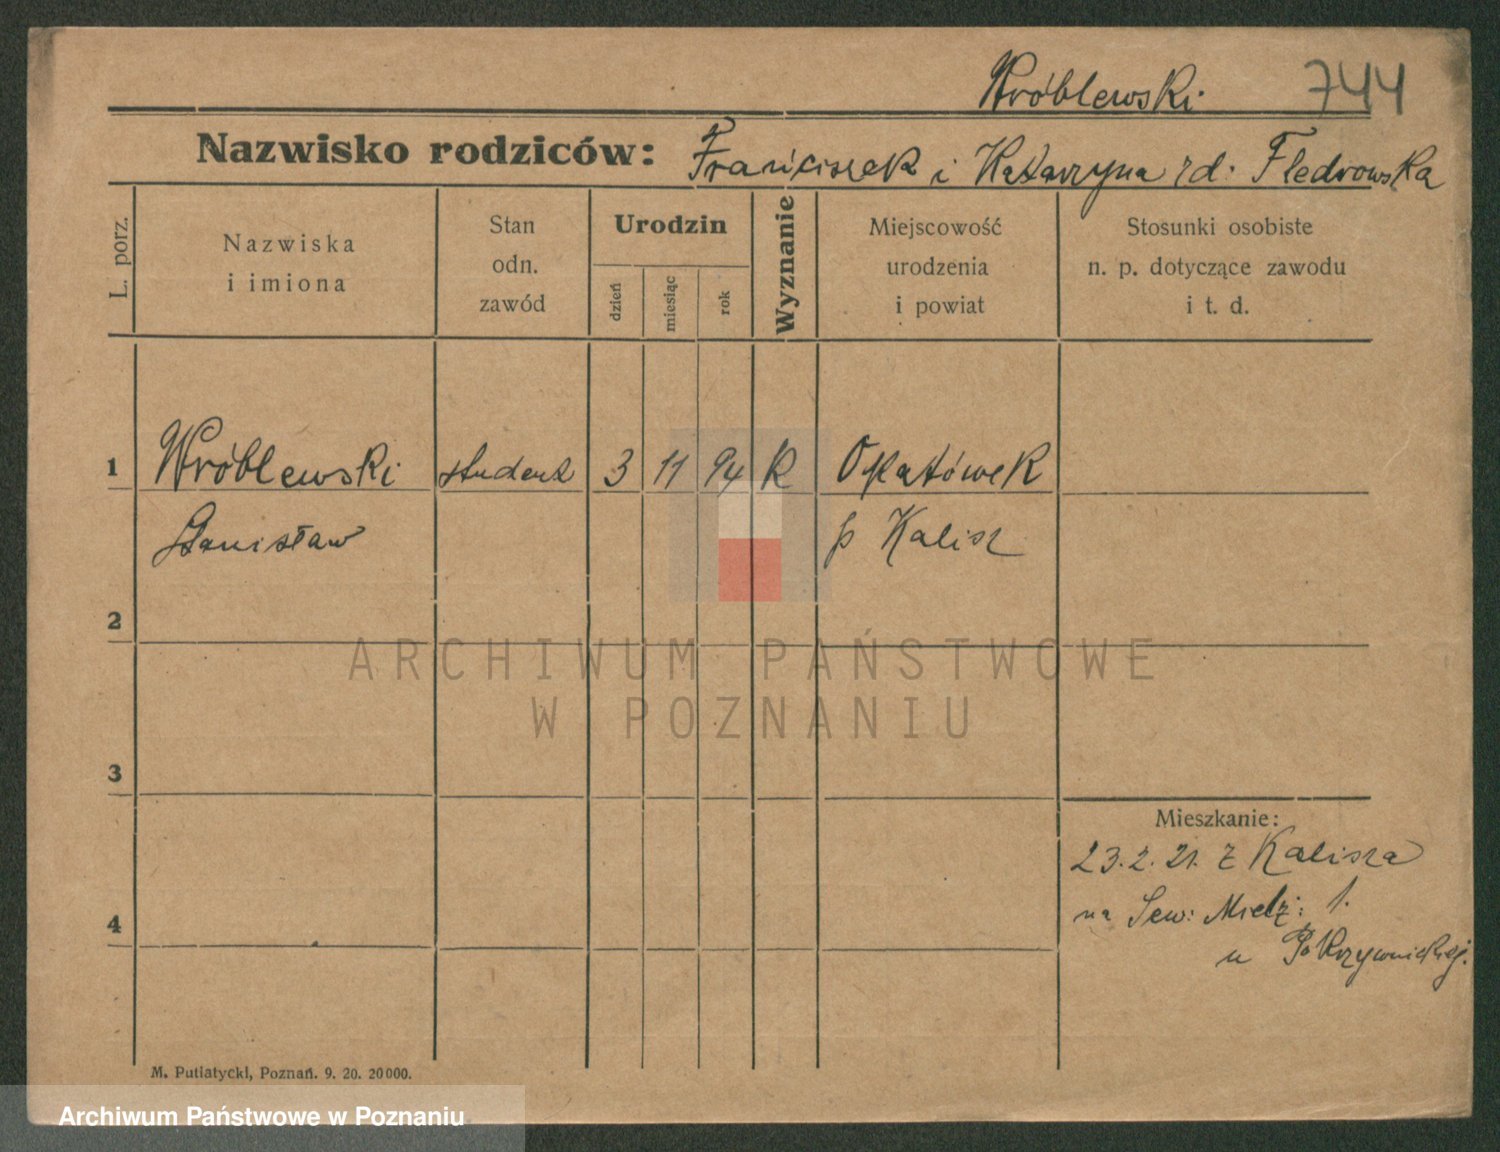 Wróblewski 744
Nazwisko rodziców: Franciszek i Katarzyna rd. Fledrowska
L. porz.
Nazwiska
i imiona
Stan
odn.
zawód
Urodzin
dzień
miesiąc
rok
Wyznanie
Miejscowość
urodzenia
i powiat
Stosunki osobiste
n. p. dotyczące zawodu
i t. d.
1 Wróblewski student 3 11 94 K Opatówek
Stanisław p Kalisz
2
3
4
Mieszkanie:
23.2.21. z Kalisza
na Sew: Mielż: 1.
u Pokrzywnickiej.
M. Putiatycki, Poznań. 9. 20. 20000.
ARCHIWUM PAŃSTWOWE
W POZNANIU
Archiwum Państwowe w Poznaniu